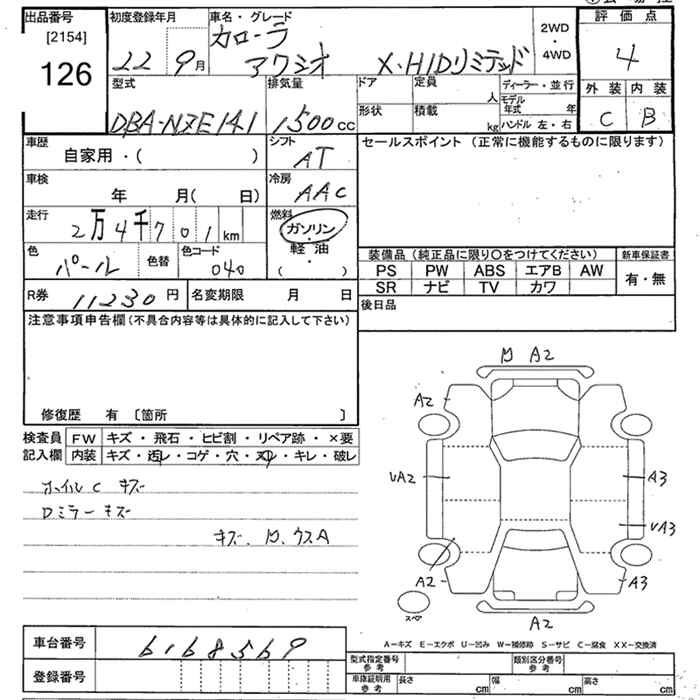 出品番号 初度登録年月 車名・グレード 2WD ・ 4WD 評価点
[2154] カローラ
126 22 9月 アクシオ X・HIDリミテッド 4
型式 排気量 ドア 定員 人 ディーラー・並行 外装 内装
DBA-NZE141 1500cc 形状 積載 kg モデル年式 年 C B
ハンドル 左・右
車歴 シフト セールスポイント (正常に機能するものに限ります)
自家用・( ) AT
車検 冷房
年 月( 日) AAC
走行 燃料
2万4千701km ガソリン
色 色替 色コード 軽油 装備品 (純正品に限り〇をつけてください) 新車保証書
パール 040 ( ・ ) PS PW ABS エアB AW 有・無
R券 11230円 名変期限 月 日 SR ナビ TV カワ
後日品
注意事項申告欄(不具合内容等は具体的に記入して下さい)
修復歴 有 〔箇所 〕
検査員 FW キズ・飛石・ヒビ割・リペア跡・×要
記入欄 内装 キズ・汚レ・コゲ・穴・スレ・キレ・破レ
ホイルC キズ
Dミラーキズ
キズ、凹、ウスA
凹 A2
A2
UA2 A3
UA3
A2 A3
スペア A2
A−キズ E−エクボ U−凹み W−補修跡 S−サビ C−腐食 XX−交換済
車台番号 6168569
型式指定番号 参考 類別区分番号 参考
登録番号 車庫証明用 参考 長さ cm 幅 cm 高さ cm